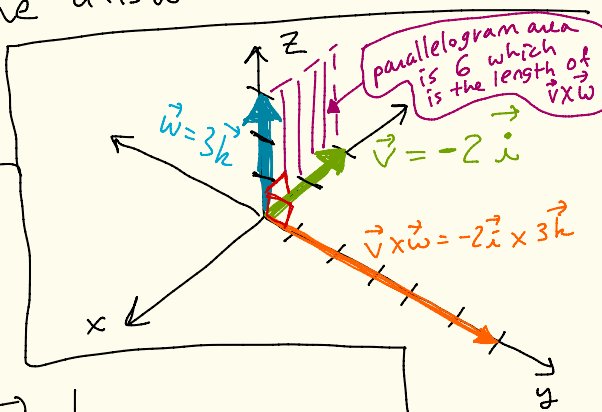 z
parallelogram area
is 6 which
is the length of
v⃗×w⃗
w⃗=3k⃗
v⃗ = -2 i⃗
v⃗×w⃗ = -2i⃗ × 3k⃗
x
y